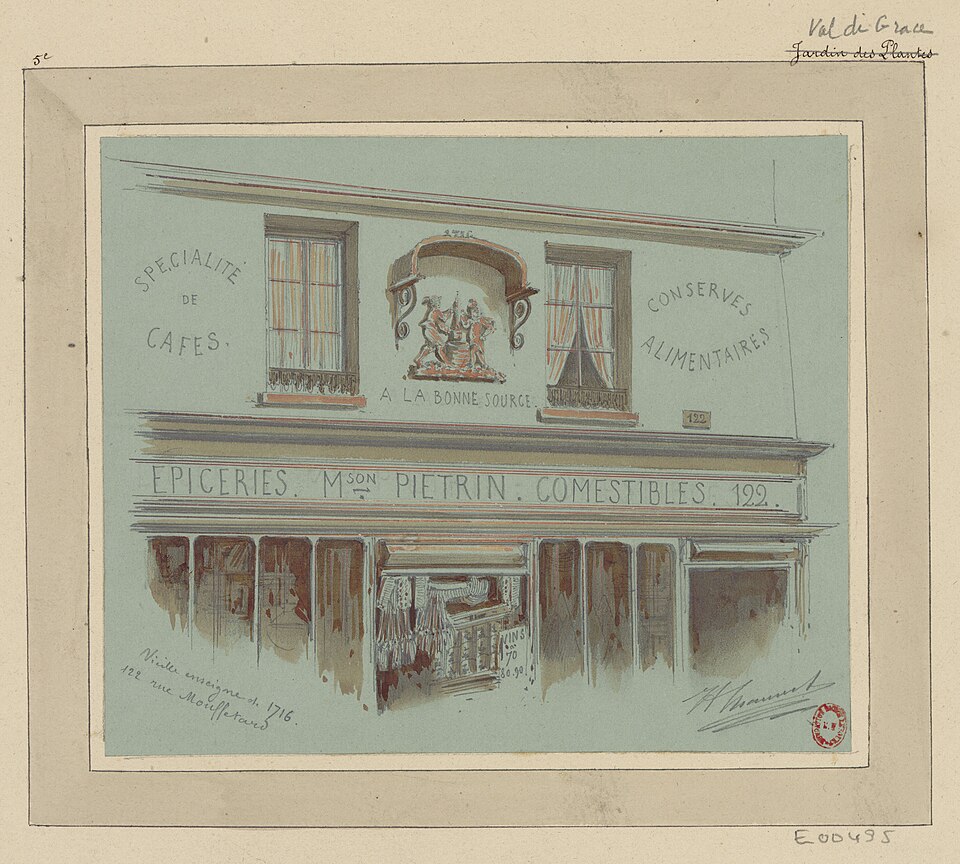 Val de Grace
5e
Jardin des Plantes
SPECIALITÉ
DE
CAFES.
1716
CONSERVES
ALIMENTAIRES
A LA BONNE SOURCE
122
EPICERIES. MSON PIETRIN. COMESTIBLES. 122.
VINS
70
80.90
Vieille enseigne de 1716.
122 rue Mouffetard
E00495